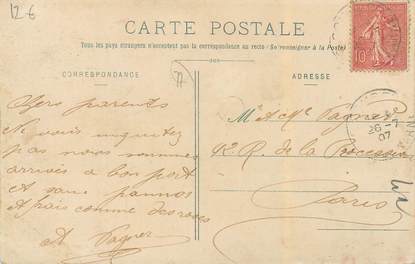 12 €
CARTE POSTALE
Tous les pays étrangers n'acceptent pas la correspondance au recto (Se renseigner à la Poste)
CORRESPONDANCE
ADRESSE
10
26 - 7
07
Chers parents
Ne vous inquietez
pas nous sommes
arrivés a bon port
et sans pannes
et frais comme des roses
A Pagnet
Mr et Mme Pagnet
42 R. de la Procession
Paris